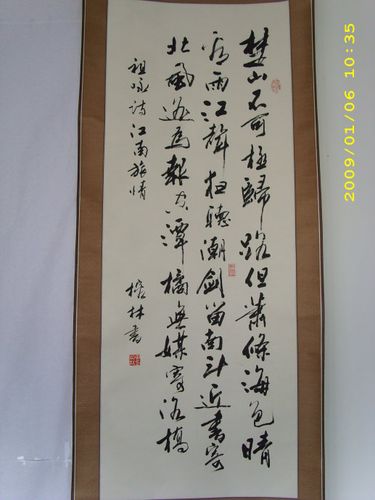 楚山不可極歸路但蕭條海色晴
看雨江聲夜聽潮劍留南斗近書寄
北風遙為報空潭橘無媒寄洛橋
祖咏詩江南旅情
林書
2009/01/06 10:35